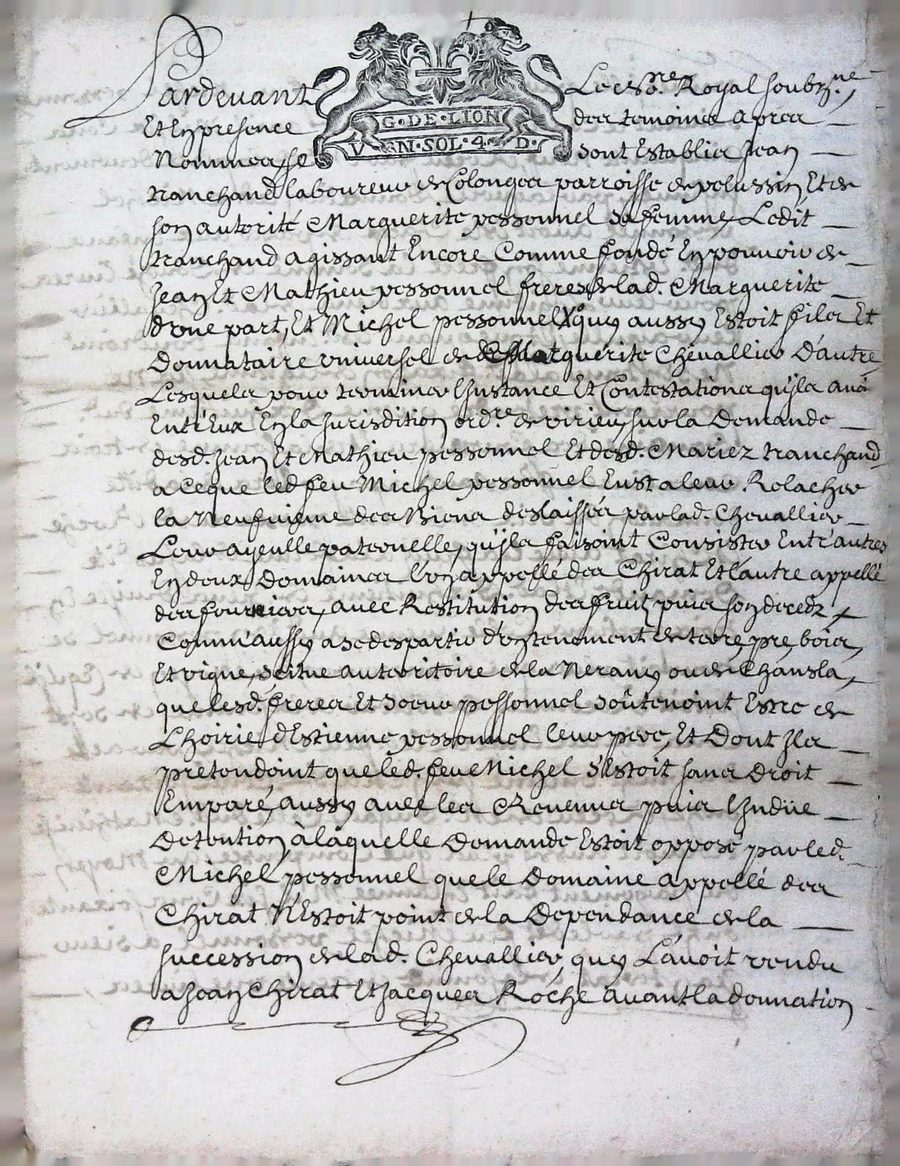 Pardevant Le no.re Royal soubz.ne
G·DE·LION
Et En presence des temoins apres
V N·SOL·4·D·
Nommes se sont Establis Jean
tranchand laboureur de Colonges parroisse de pelussin Et de
son autorité Marguerite pessonnel sa femme, Ledit
tranchand agissant Encore Comme fondé En pouvoir de
Jean Et Mathieu pessonnel freres de lad. Marguerite
d'une part, Et Michel pessonnel quy aussy Estoit fils Et
Donnataire universel de Marguerite Chevallier D'autre
Lesquels pour terminer L'instance Et Contestations qu'ils avoi
Entr'Eux En la Jurisdition ord.re de virieu, sur la Demande
desd. Jean Et Mathieu pessonnel Et desd. Mariez tranchand
a Ce que led. feu Michel pessonnel Eust a leur Relacher
la Neufvieme des Biens deslaissés par lad. Chevallier
Leur ayeulle paternelle, qu'ils faisoint Consister Entr'autres
En deux Domaines l'un appellé des Chirat Et l'autre appellé
des fourniers, avec Restitution des fruit puis son decedz,
Comm'aussy a se despartir d'un tenement de terre, pre, bois,
Et vigne, scitue au territoire de la Nerany ou de Chansla,
que lesd. freres Et soeur pessonnel soûtenoint Estre de
L'hoirie d'Estienne pessonnel leur pere, Et Dont Ils
pretendoint que led. feu Michel s'Estoit sans Droit
Emparé, aussy avec les Revenus puis L'indüe
Detention, à laquelle Demande Estoit opposé par led.
Michel pessonnel que le Domaine appellé des
Chirat N'Estoit point de la Dependance de la
succession de lad. Chevallier, quy L'avoit vendu
a Jean Chirat Et Jacques Roche avant la donnation